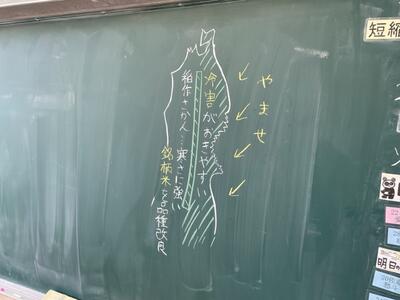 やませ
冷害がおきやす
稲作さかん…寒さに強
銘柄米を品種改良
短縮
明日の